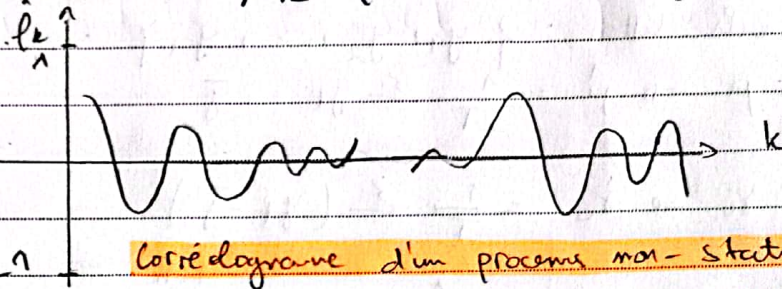 ρ̂k
1
k
-1
Corrélograme d'un processus non-stat